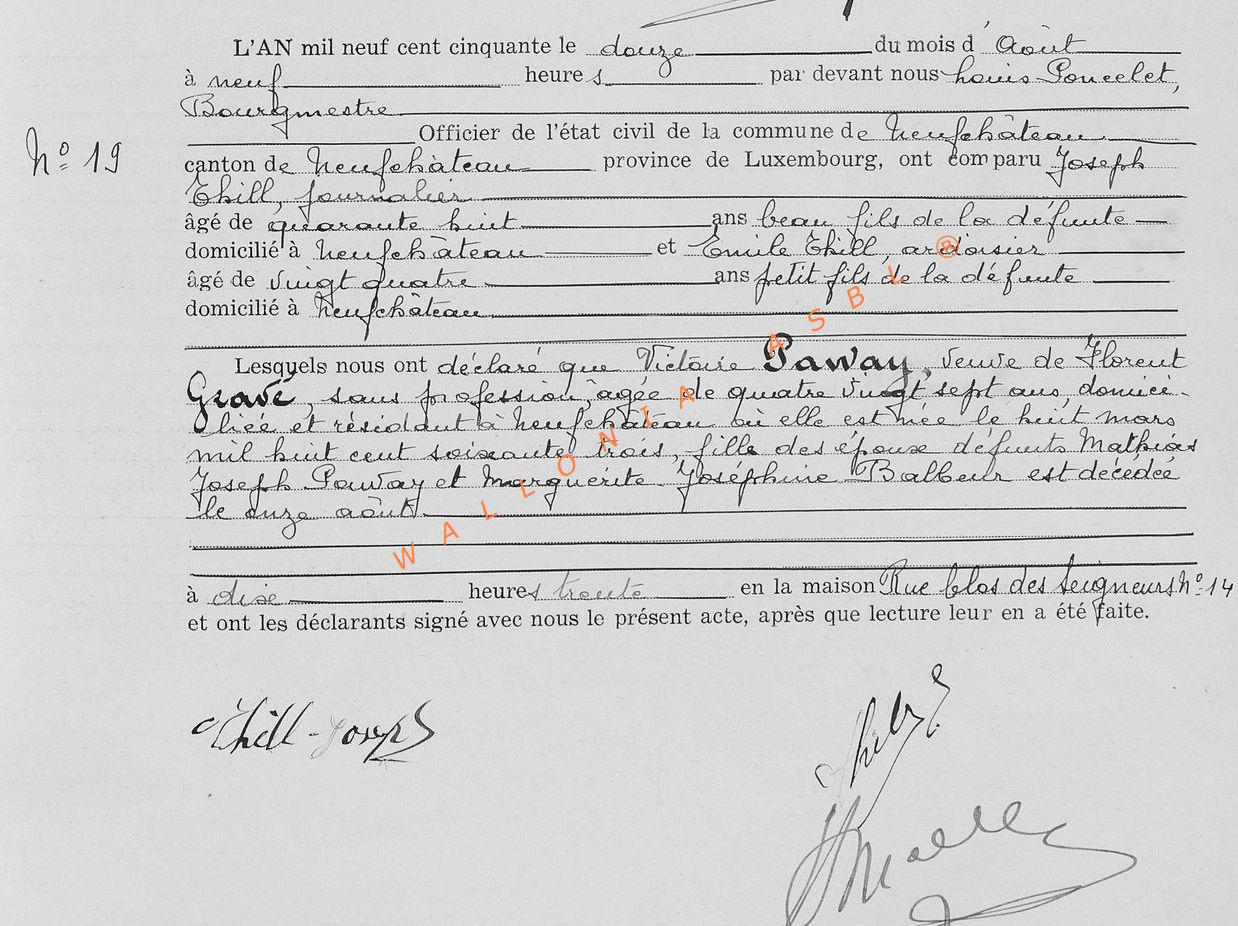 L'AN mil neuf cent cinquante le douze du mois d' Août
à neuf heures par devant nous Louis Poncelet,
Bourgmestre
Officier de l'état civil de la commune de Neufchâteau
Nº 19
canton de Neufchâteau province de Luxembourg, ont comparu Joseph
Thill, journalier
âgé de quarante huit ans beau fils de la défunte
domicilié à Neufchâteau et Emile Thill, ardoisier
âgé de vingt quatre ans petit fils de la défunte
domicilié à Neufchâteau
Lesquels nous ont déclaré que Victoire Paway, veuve de Florent
Gravé, sans profession, agée de quatre vingt sept ans, domici-
liée et résidant à Neufchâteau où elle est née le huit mars
mil huit cent soixante trois, fille des époux défunts Mathias
Joseph Paway et Marguerite Joséphine Balbeur est décédée
le onze août
à dix heures trente en la maison Rue Clos des Seigneurs Nº 14
et ont les déclarants signé avec nous le présent acte, après que lecture leur en a été faite.
Thill-Joseph
WALLONIA ASBL ®